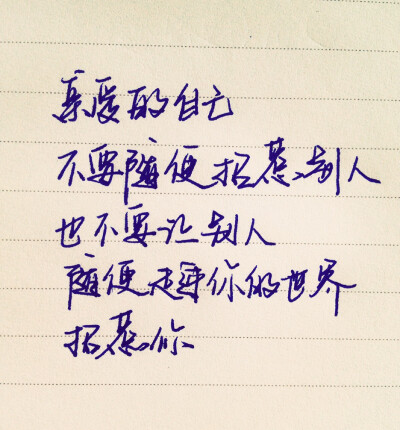 亲爱的自己
不要随便招惹别人
也不要让别人
随便走进你的世界
招惹你